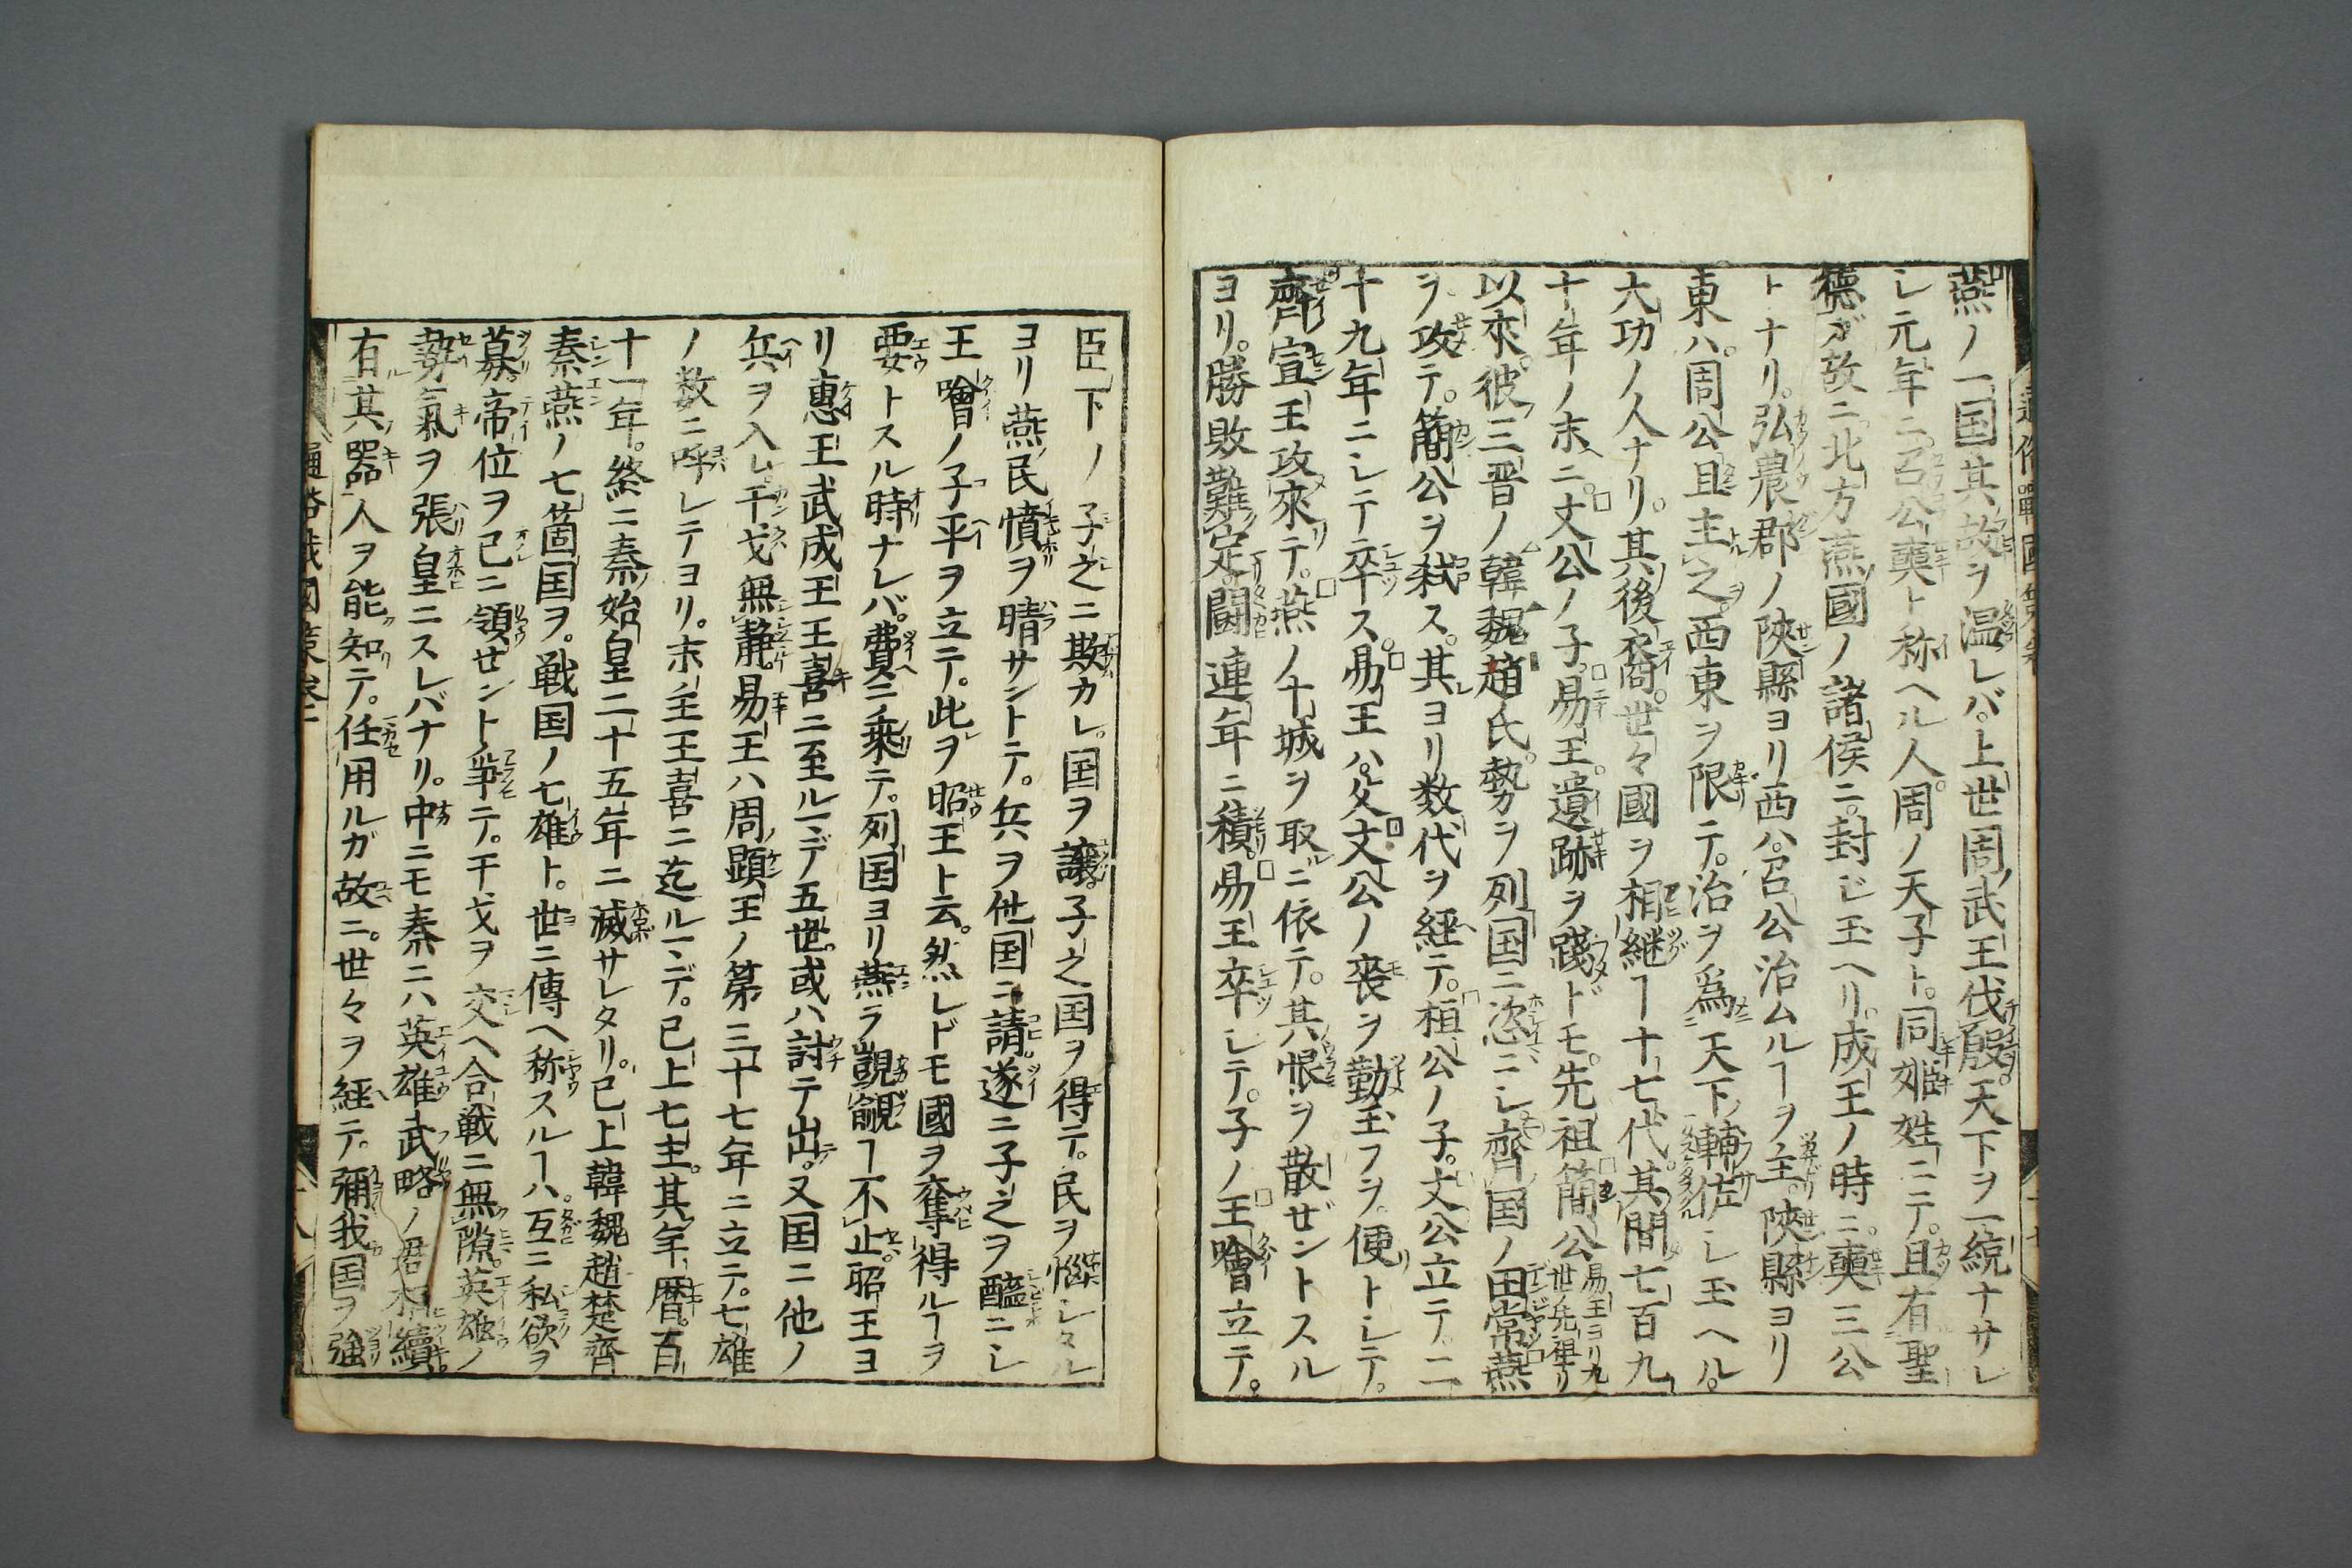 燕ノ一国其故ヲ温レバ。上世周ノ武王伐殷。天下ヲ一統ナサレ
シ元年ニ召公奭ト称ヘル人。周ノ天子ト。同姫姓ニテ。且有聖
德ガ故ニ北方燕國ノ諸侯ニ。封ジ玉ヘリ。成王ノ時ニ。奭三公
トナリ。弘農郡ノ陝縣ヨリ西ハ。召公治ムルヿヲ主。陝縣ヨリ
東ハ。周公旦主之。西東ヲ限テ。治ヲ爲天下ノ輔佐シ玉ヘル。
大功ノ人ナリ。其後裔。世々國ヲ相継ヿ十七代。其間七百九
十年ノ末ニ。文公ノ子。易王。遺跡ヲ踐ドモ。先祖簡公易王ヨリ九世先祖ナリ
以來。彼三晋ノ韓魏趙氏。勢ヲ列国ニ恣ニシ齊国ノ田常燕
ヲ攻テ。簡公ヲ弑ス。其ヨリ数代ヲ經テ。桓公ノ子。文公立テ。二
十九年ニシテ卒ス。易王ハ。父文公ノ喪ヲ勤玉フヲ。便トシテ。
齊宣王攻來テ。燕ノ十城ヲ取ニ依テ。其恨ヲ散ゼントスル
ヨリ。勝敗難定。闘連年ニ積。易王卒シテ。子ノ王噲立テ。
臣下ノ子之ニ欺カレ。国ヲ讓。子之国ヲ得テ。民ヲ惱シタル
ヨリ燕民憤ヲ晴サントテ。兵ヲ他国ニ請。遂ニ子之ヲ醢ニシ
王噲ノ子平ヲ立テ。此ヲ昭王ト云。然レドモ國ヲ奪得ルヿヲ
要トスル時ナレバ。費ニ乘テ。列国ヨリ燕ヲ覬覦ヿ不止。昭王ヨ
リ惠王武成王王喜ニ至ルマデ五世。或ハ討テ出。又国ニ他ノ
兵ヲ入レ。干戈無静。易王ハ周ノ顕王ノ第三十七年ニ立テ。七雄
ノ数ニ呼レテヨリ。末ノ主王喜ニ迄ルマデ。已上七主。其年暦。百
十一年。終ニ秦ノ始皇二十五年ニ滅サレタリ。已上韓魏趙楚齊
秦燕ノ七箇国ヲ。戦国ノ七雄ト。世ニ傳ヘ称スルヿハ互ニ私欲ヲ
募。帝位ヲ己ニ領セント爭テ。干戈ヲ交ヘ合戦ニ無隙。英雄ノ
勢氣ヲ張皇ニスレバナリ。中ニモ秦ニハ英雄武略ノ君相續。
有其器人ヲ能知テ。任用ルガ故ニ。世々ヲ經テ。彌我国ヲ強
通俗戰國策卷二